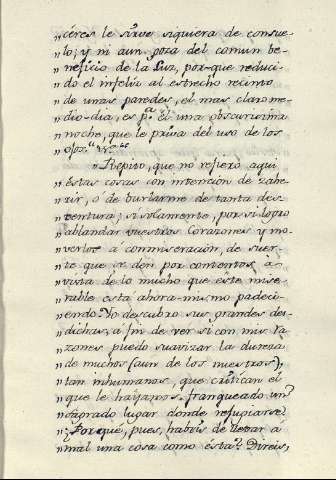 „céres le sirve siquiera de consue-
„lo; y ni aun goza del comun be-
„neficio de la Luz, por-que reduci-
„do el infeliz al estrecho recinto
„de unas paredes, el mas claro me-
„dio-dia, es p.ª él una obscurisima
„noche, que le priva del uso de los
„ojos.
„Repito, que no refiero aqui
„éstas cosas con intención de zahe-
„rir, ó de burlarme de tanta des-
„ventura; sí solamente, por si logro
„ablandar vuestros Corazones y mo-
„verlos á conmiseración, de suer-
„te que se dén por contentos, á
„vista de lo mucho que éste mise-
„rable está ahora-mismo padeci-
„endo. No descubro sus grandes des-
„dichas, a fin de ver si con mis ra-
„zones puedo suavizar la dureza
„de muchos (aun de los nuestros),
„tan inhumanos, que critican el
„que le hayamos franqueado un
„sagrado lugar donde refugiarse.
„¿Por qué, pues, habeis de llevar á
„mal una cosa como ésta? Direis,